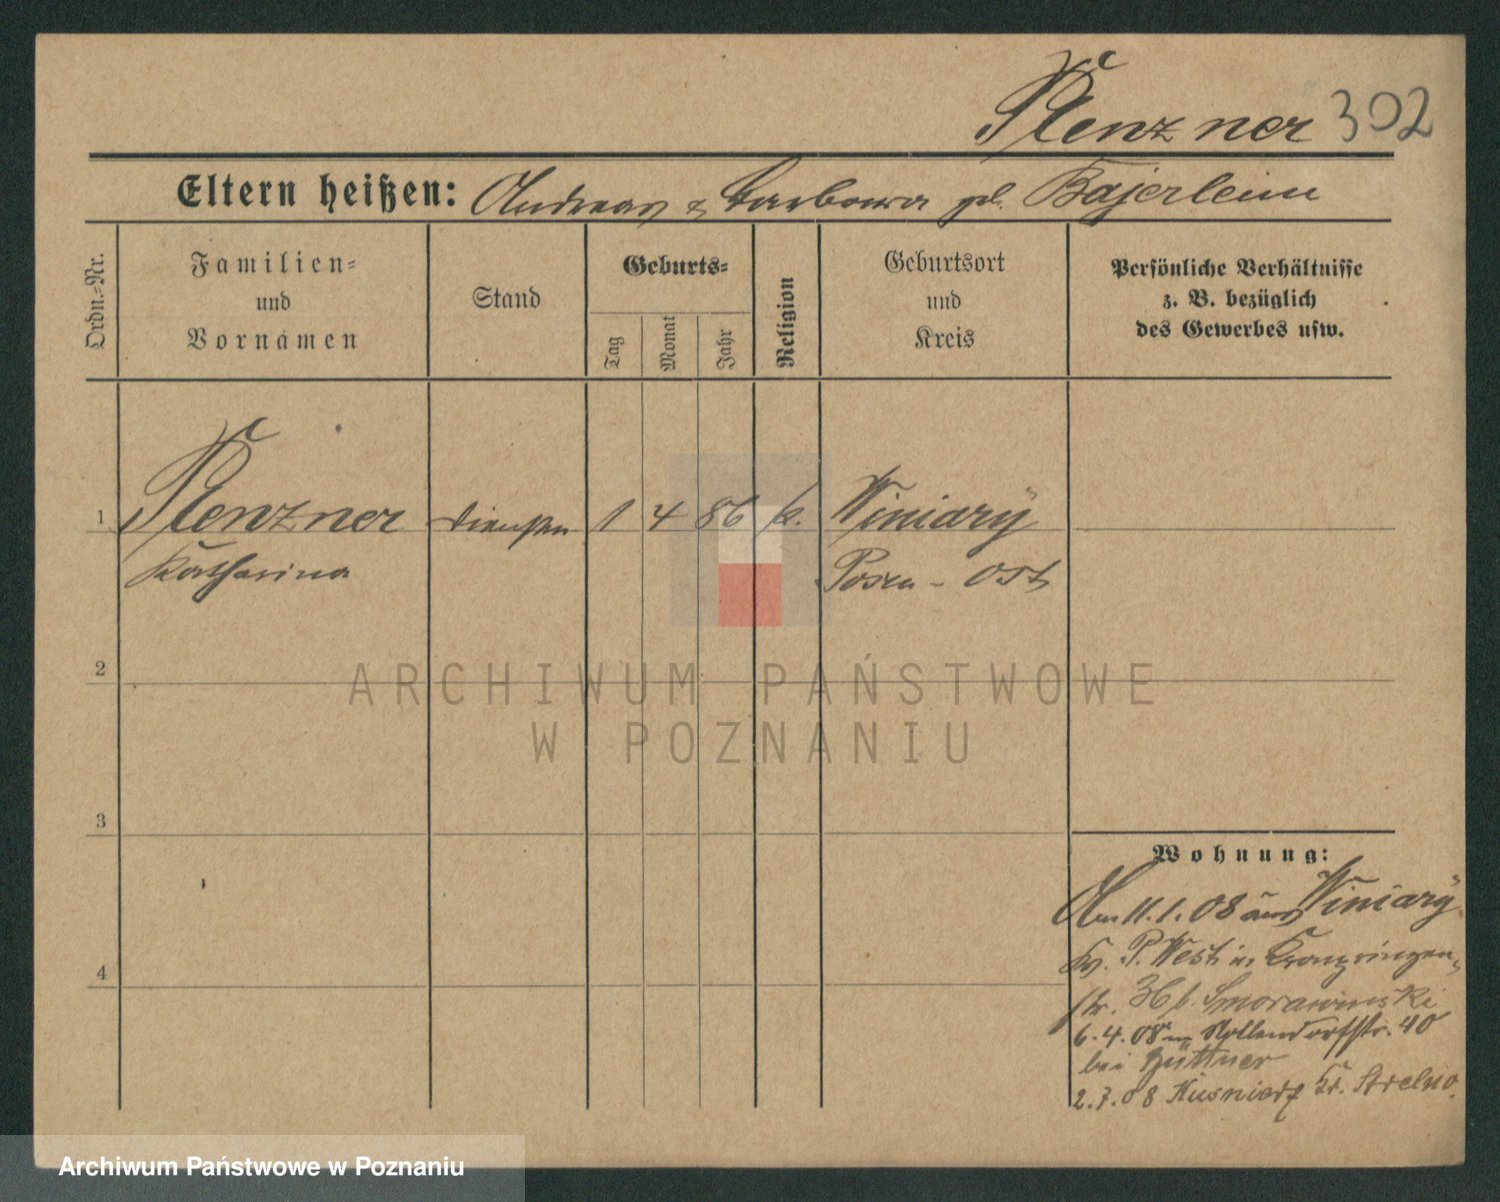 Plenzner 302
Eltern heißen: Andreas & Barbara gb. Bajerlein
Ordn.-Nr.
Familien-
und
Vornamen
Stand
Geburts-
Tag
Monat
Jahr
Religion
Geburtsort
und
Kreis
Persönliche Verhältnisse
z. B. bezüglich
des Gewerbes usw.
1 Plenzner 1 4 86 k. Winiary
Katharina Posen - Ost
2
3
4
Wohnung:
Am 11.1.08 aus Winiary
Kr. P. West in Kronprinzen-
str. Smorawinski
6.4.08 n. Nollendorfstr. 40
bei Büttner
2.7.08 Kusnierz Kr. Strelno.
ARCHIWUM PAŃSTWOWE
W POZNANIU
Archiwum Państwowe w Poznaniu